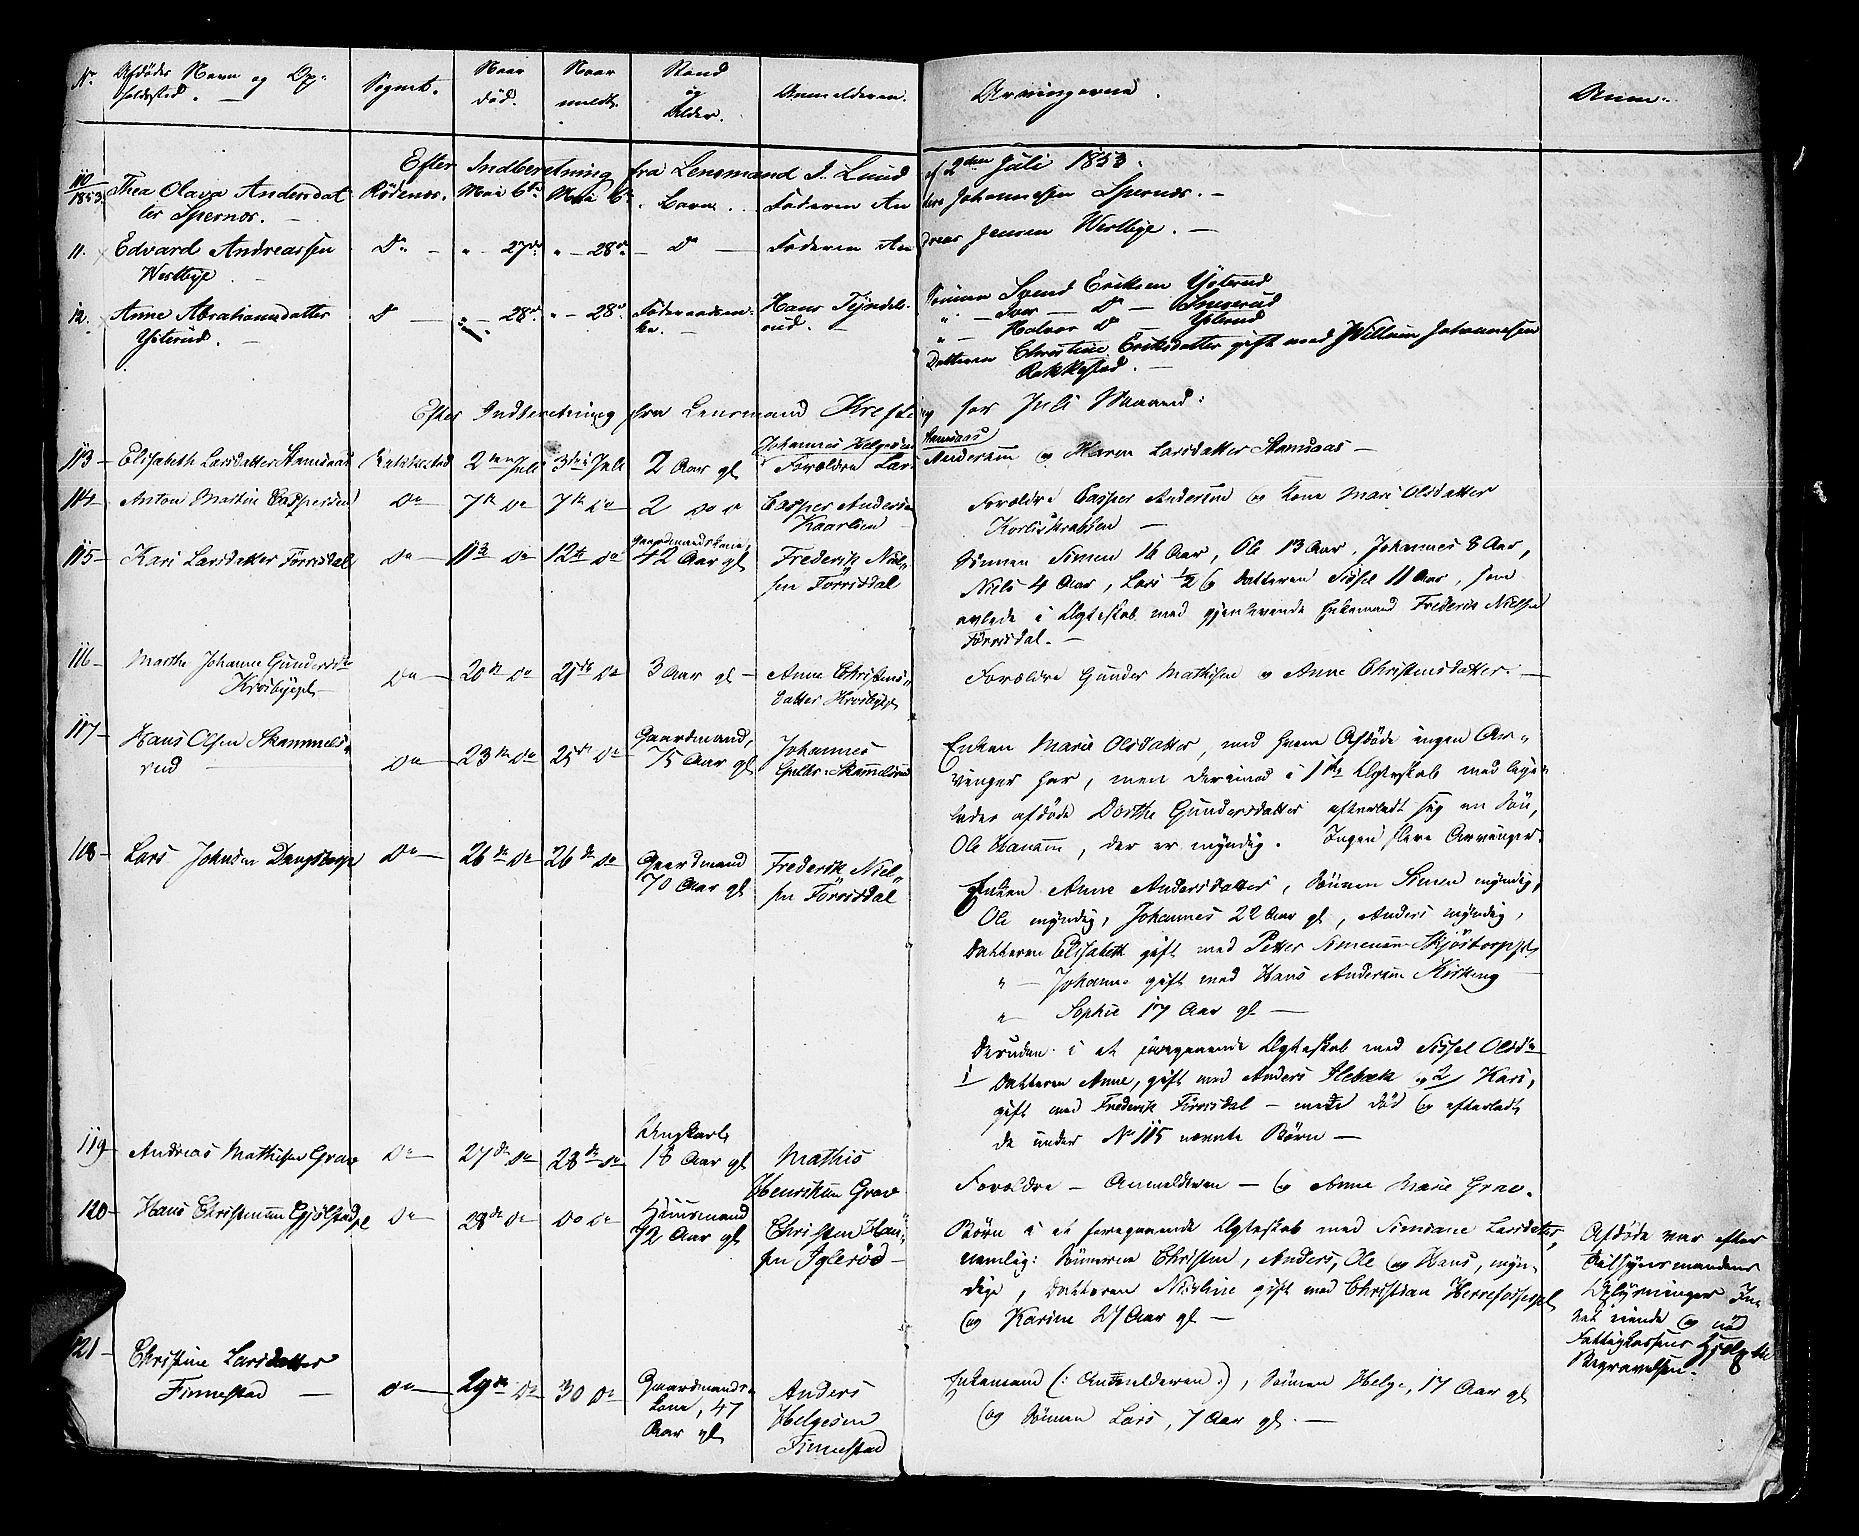 No. Afdødes Navn og Op- Sognet. Naar Naar Stand Anmelderen. Arvingerne. Anm.
holdssted. død. meldt. og
Alder.
Efter Indberetning fra Lensmand J. Lund af 2den Juli 1853.
110
1853 Thea Olava Andersdat Rødenæs. Mai 6te Mai 6te Barn. Faderen Anders Johannesen Spernæs.
ter Spernæs.
11. Edvard Andreassen Do - " - 27de " - 28de Do Faderen Andreas Jensen Westbye.
Westbye.
12. Anne Abrahamsdatter Do " - 28de " - 28de Hans Tyndel- Sønnen Svend Eriksen Ysterud
Ysterud. rud. " Iver Do
" Halvor Do Ysterud
Datteren Christine Eriksdatter gift med Willum Johannesen
Rakkestad.
Efter Indberetning fra Lensmand Krefting for Juli Maaned:
113 Elisabeth Larsdatter Stamsaas Rakkestad 2den Juli 3die Juli 2 Aar gl Johannes Helgesen Stamsaas
Forældre Lars Andersen og Karen Larsdatter Stamsaas
114 Anton Martin Caspersen Do 7de do 7de do 2 do do Casper Andersen Forældre Casper Andersen og Kone Mari Olsdatter
115 Kari Larsdatter Førrisdal do 11te do 12te do Gaardmandskone,
42 Aar gl Frederik Niel- Sønnen Simen 16 Aar, Ole 13 Aar, Johannes 8 Aar,
sen Førrisdal Niels 4 Aar, Lars 1/2 og Datteren Sissel 11 Aar, som
avlede i Ægteskab med gjenlevende Enkemand Frederik Nielsen
Førrisdal.
116 Marthe Johanne Gundersdr
Krosbyejet do 20de do 21de do 3 Aar gl Anne Christens- Forældre Gunder Mathisen og Anne Christensdatter.
datter Krosbyejet
117 Hans Olsen Skammels-
rud do 23de do 25de do Gaardmand, Johannes Enken Marie Olsdatter, med hvem Afdøde ingen Ar-
75 Aar gl Skammelsrud vinger har, men derimod i 1ste Ægteskab med lige-
ledes afdøde Dorthe Gundersdatter efterladt sig en Søn,
Ole Hansen, der er myndig. Ingen flere Arvinger.
118 Lars Johnsen do 26de do 26de do Gaardmand Frederik Niel-
70 Aar gl sen Førrisdal Enken Anne Andersdatter, Sønnen Simen myndig,
Ole myndig, Johannes 22 Aar gl, Anders myndig,
Datteren Elisabeth gift med Petter Simensen Skjøstorppl
" Johanne gift med Hans Andersen Kirkeng
" Sophie 17 Aar gl
Desuden i et foregaaende Ægteskab med Sissel Olsdr
1/ Datteren Anne, gift med Anders Slebæk og 2/ Kari,
gift med Frederik Førrisdal - men død og efterladt
de under No 115 nævnte Børn
119 Andreas Mathisen Grav do 27de do 28de do Ungkarl Mathis
18 Aar gl Henriksen Grav Forældre - Anmelderen - og Anne Marie Grav.
120 Hans Christensen Gjølstadpl do 28de do do do Huusmand Christen Han- Børn i et foregaaende Ægteskab med Simsane Larsdatter,
72 Aar gl sen Iglerød nemlig: Sønnerne Christen, Anders, Ole og Hans, myn-
dige, Datteren Nicoline gift med Christian Herrefossespl
og Karine 27 Aar gl
Afdøde var efter
Tilsynsmandens
Oplysninger In-
tet eiende og nød
Fattigkassens Hjælp til
Begravelsen.
121 Christine Larsdatter
Finnestad do 29de do 30 do Gaardmands- Anders Enkemand (: Anmelderen :), Sønnen Helge, 17 Aar gl
kone, 47 Helgesen og Sønnen Lars, 7 Aar gl.
Aar gl Finnestad